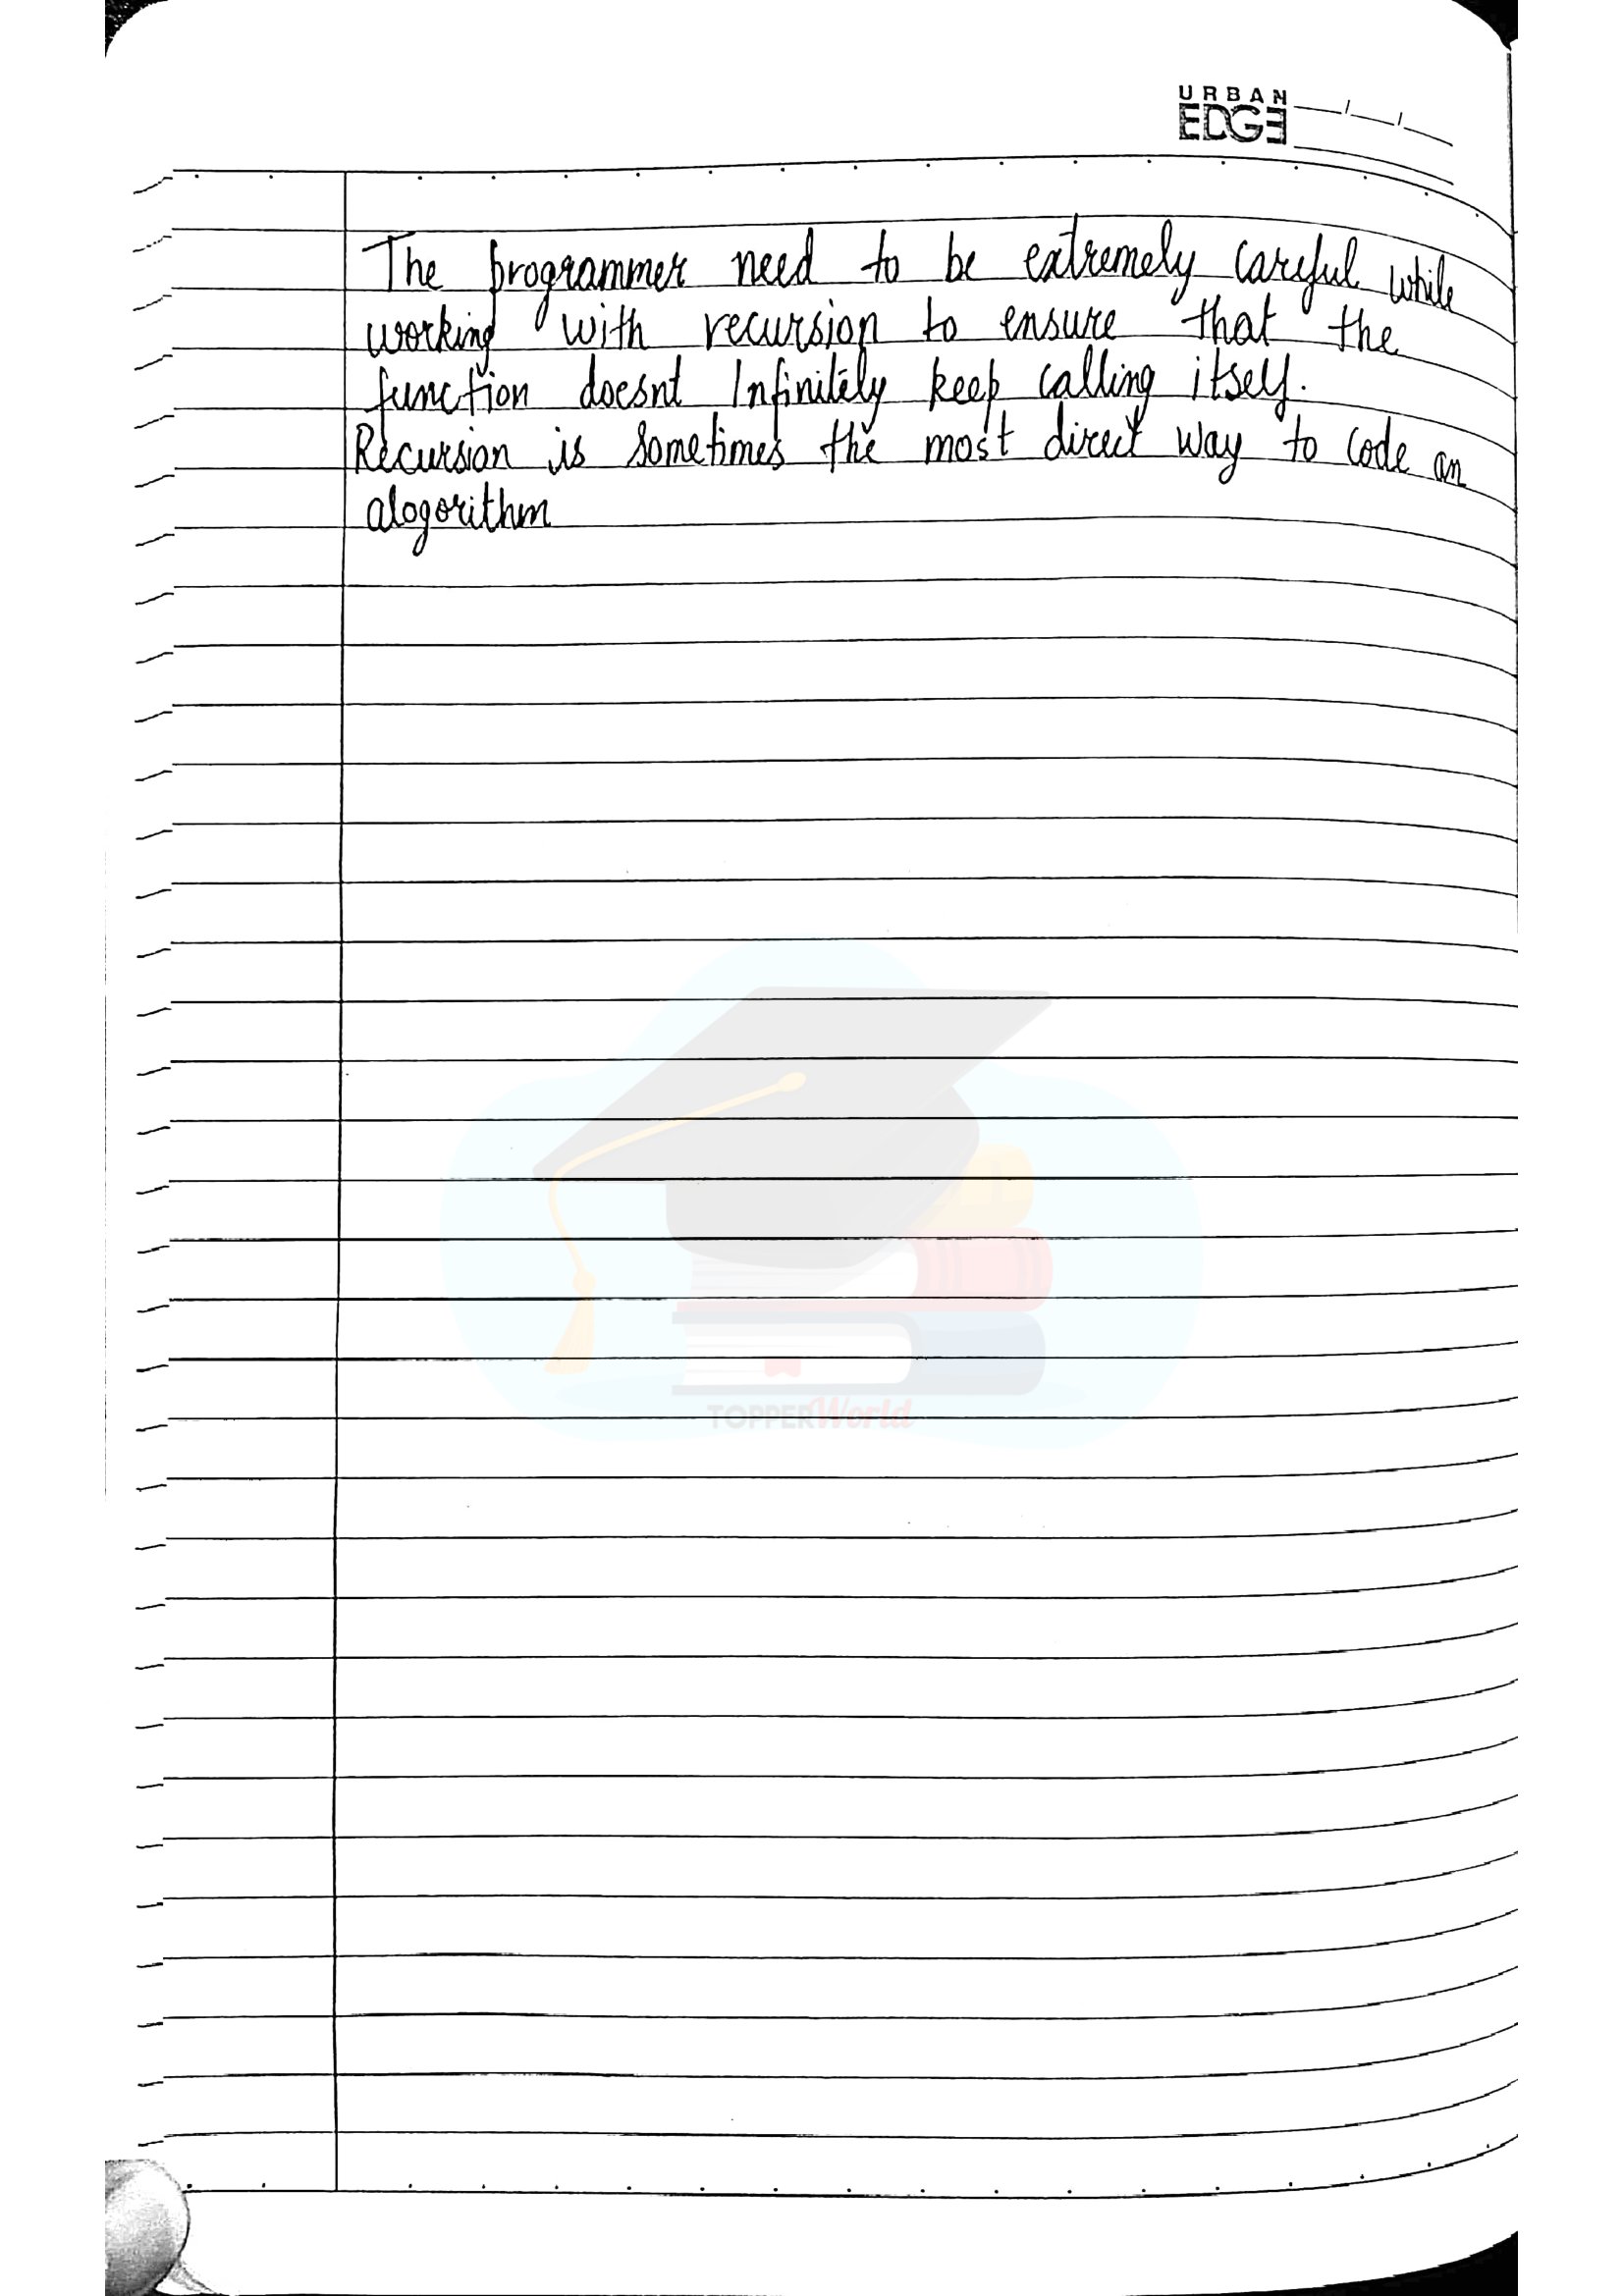 URBAN
EDGE
The programmer need to be extremely careful while
working with recursion to ensure that the
function doesnt Infinitely keep calling itself.
Recursion is sometimes the most direct way to code an
alogorithm
TOPPERWorld